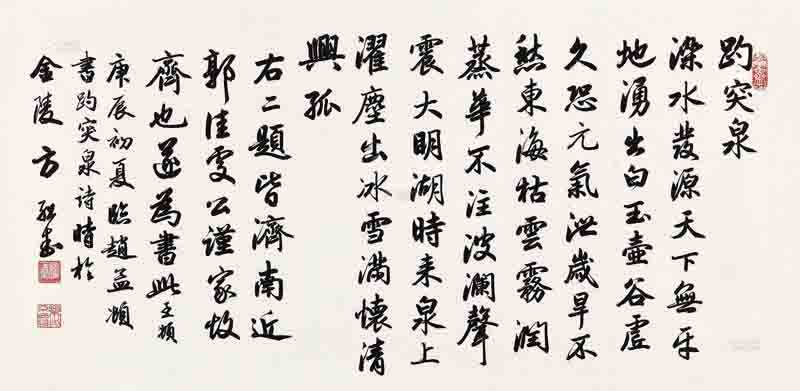 趵突泉
濼水發源天下無平
地湧出白玉壺谷虛
久恐元氣泄歲旱不
愁東海枯雲霧潤
蒸華不注波瀾聲
震大明湖時來泉上
濯塵出冰雪滿懷清
興孤
右二題皆濟南近
郭佳雯公謹家故
齊也遂為書此孟頫
庚辰初夏臨趙孟頫
書趵突泉詩時於
金陵方